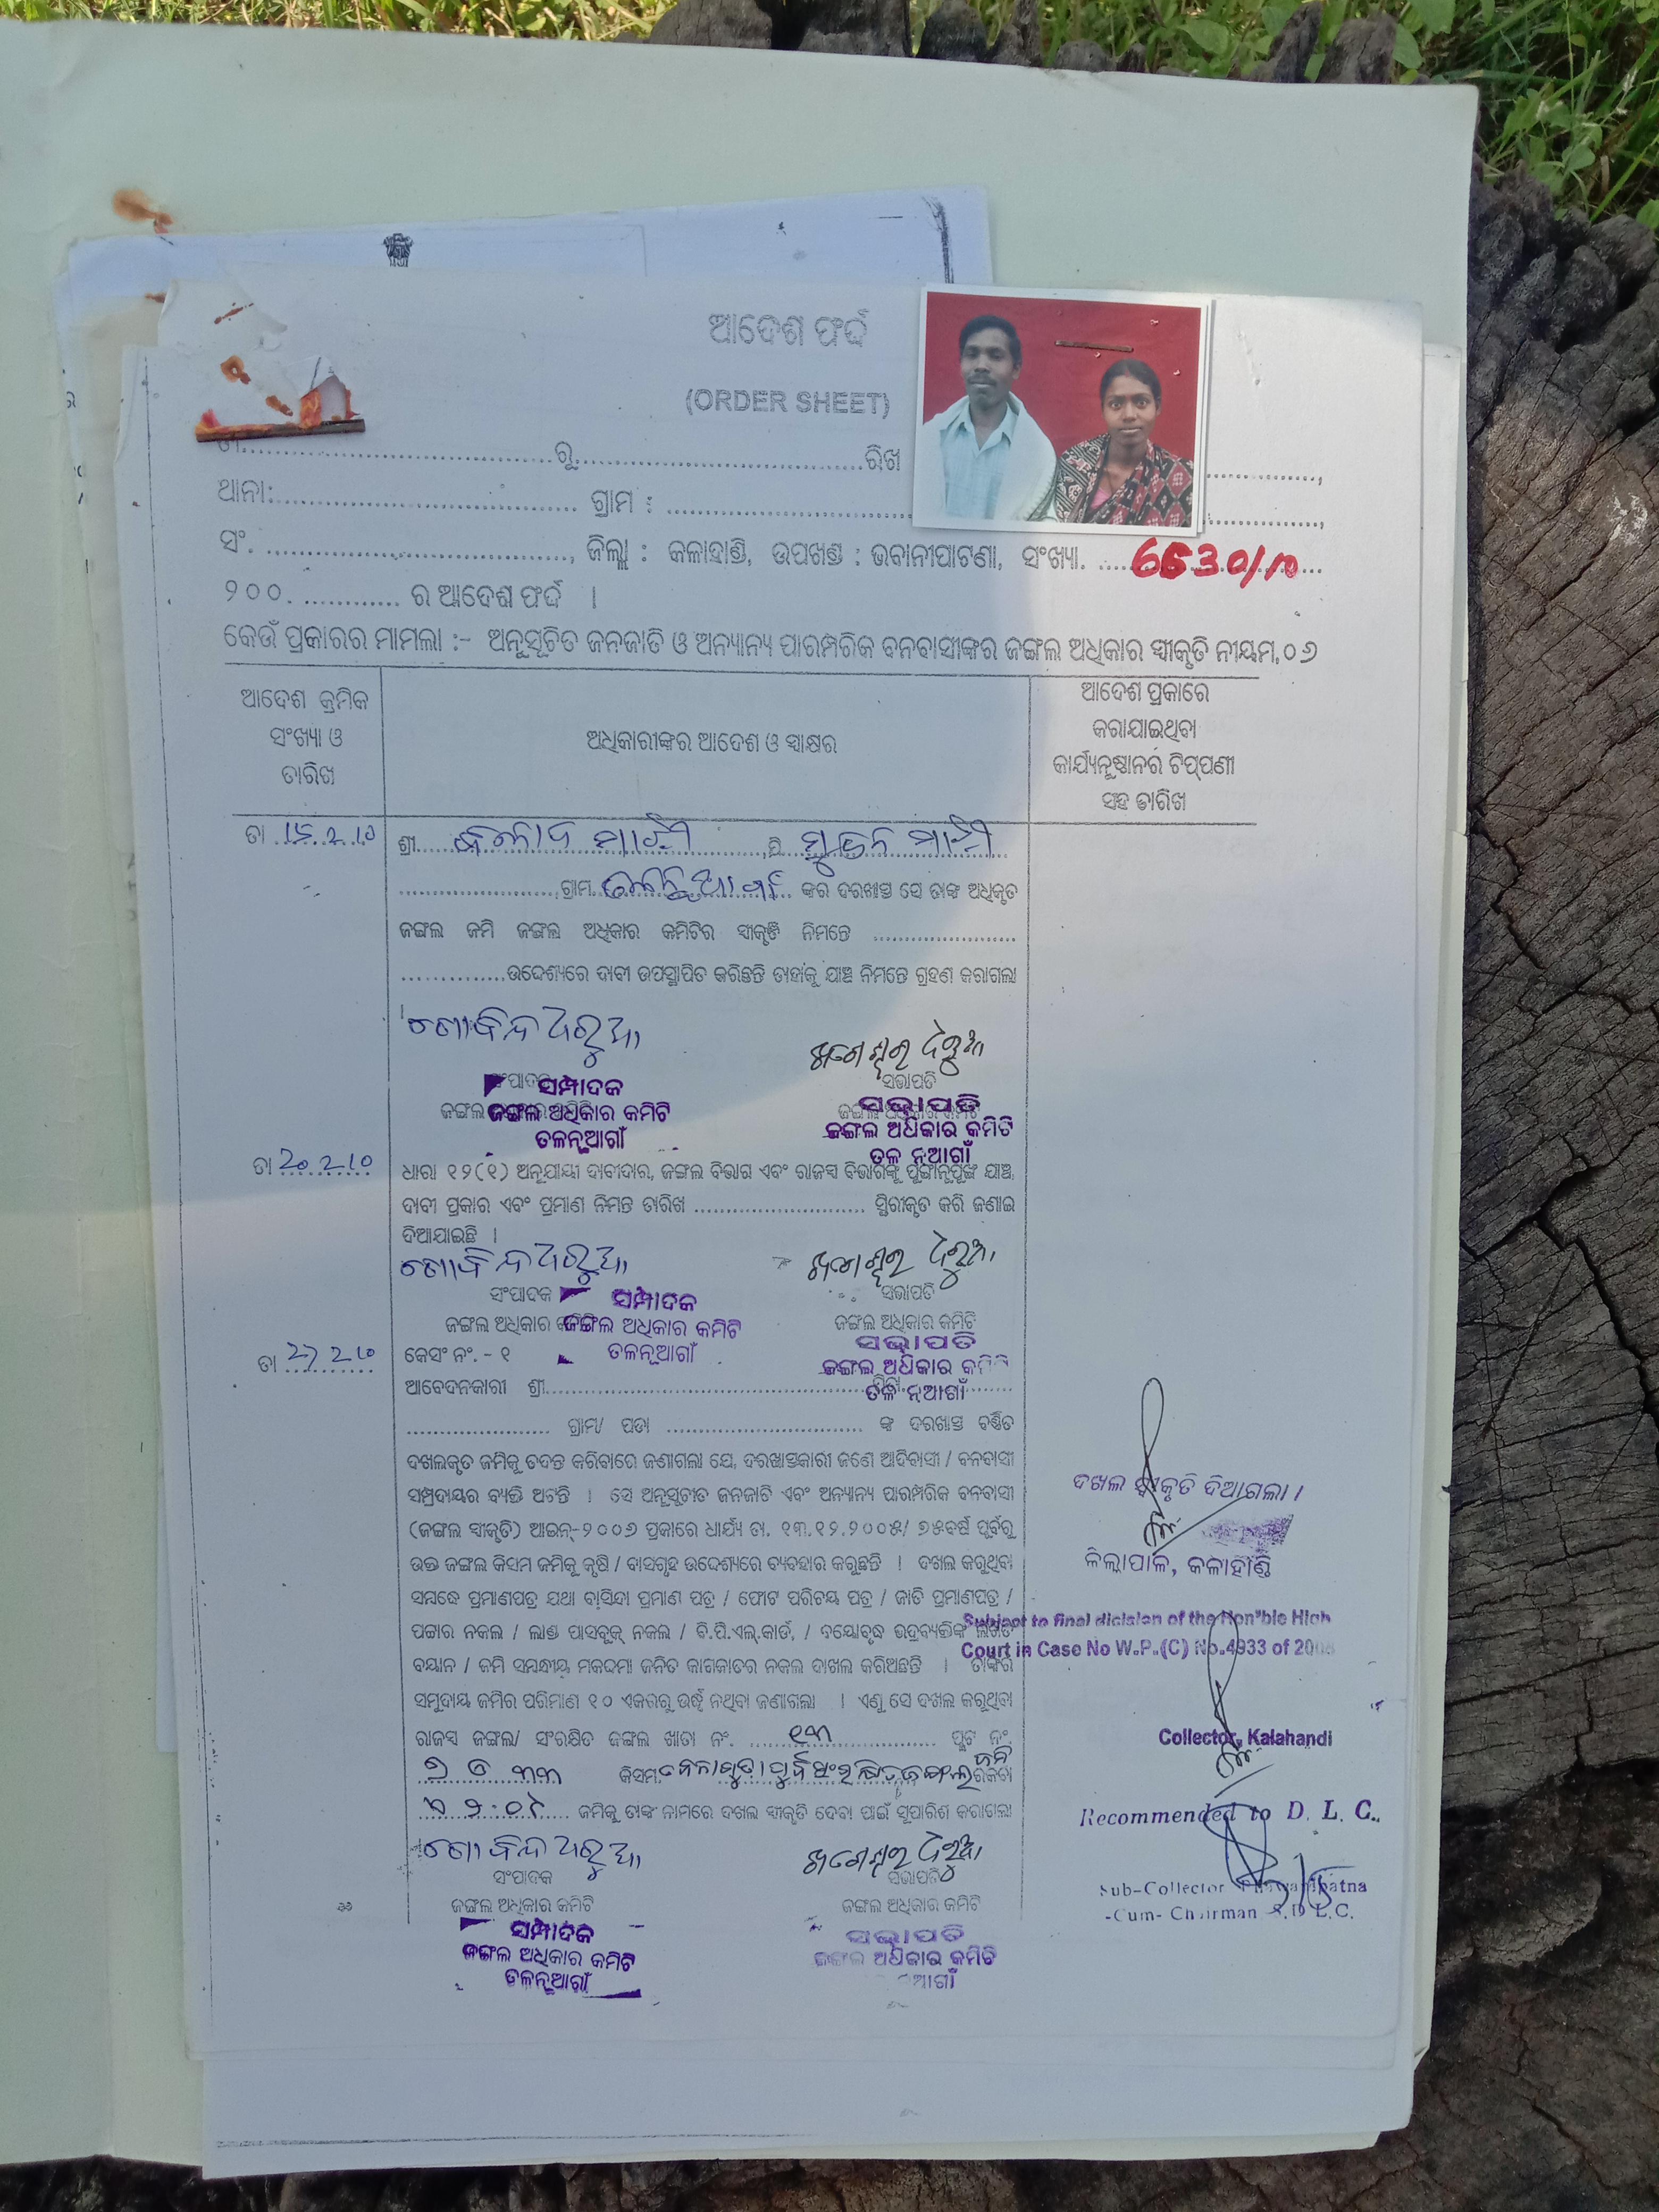 ଆଦେଶ ଫର୍ଦ୍ଦ
(ORDER SHEET)
ରୁ ରିଖ
ଥାନା: ଗ୍ରାମ :
ସଂ. , ଜିଲ୍ଲା : କଳାହାଣ୍ଡି, ଉପଖଣ୍ଡ : ଭବାନୀପାଟଣା, ସଂଖ୍ୟା.
୨୦୦. ର ଆଦେଶ ଫର୍ଦ୍ଦ ।
କେଉଁ ପ୍ରକାରର ମାମଲା :- ଅନୁସୂଚିତ ଜନଜାତି ଓ ଅନ୍ୟାନ୍ୟ ପାରମ୍ପରିକ ବନବାସୀଙ୍କର ଜଙ୍ଗଲ ଅଧିକାର ସ୍ୱୀକୃତି ନୀୟମ,୦୬
ଆଦେଶ କ୍ରମିକ
ସଂଖ୍ୟା ଓ
ତାରିଖ
ଅଧିକାରୀଙ୍କର ଆଦେଶ ଓ ସ୍ୱାକ୍ଷର
ଆଦେଶ ପ୍ରକାରେ
କରାଯାଇଥିବା
କାର୍ଯ୍ୟନୁଷ୍ଠାନର ଟିପ୍ପଣୀ
ସହ ତାରିଖ
ତା
ଶ୍ରୀ ମାଝୀ ,ପି ମାଝୀ
,ଗ୍ରାମ ଙ୍କର ଦରଖାସ୍ତ ସେ ତାଙ୍କ ଅଧିକୃତ
ଜଙ୍ଗଲ ଜମି ଜଙ୍ଗଲ ଅଧିକାର କମିଟିର ସ୍ୱୀକୃତି ନିମନ୍ତେ
ଉଦ୍ଦେଶ୍ୟରେ ଦାବୀ ଉପସ୍ଥାପିତ କରିଛନ୍ତି ତାହାକୁ ଯାଞ୍ଚ ନିମନ୍ତେ ଗ୍ରହଣ କରାଗଲା
।
ଗୋବିନ୍ଦ ଧରୁଆ
ସଭାପତି
ସମ୍ପାଦକ
ଜଙ୍ଗଲ ଅଧିକାର କମିଟି
ତଳନୂଆଗାଁ
ସଭାପତି
ଜଙ୍ଗଲ ଅଧିକାର କମିଟି
ତଳ ନୂଆଗାଁ
ତା 20 2 10
ଧାରା ୧୨(୧) ଅନୁଯାୟୀ ଦାବୀଦାର, ଜଙ୍ଗଲ ବିଭାଗ ଏବଂ ରାଜସ୍ୱ ବିଭାଗଙ୍କୁ ପୁଙ୍ଖାନୁପୁଙ୍ଖ ଯାଞ୍ଚ,
ଦାବୀ ପ୍ରକାର ଏବଂ ପ୍ରମାଣ ନିମନ୍ତ ତାରିଖ ସ୍ଥିରୀକୃତ କରି ଜଣାଇ
ଦିଆଯାଇଛି ।
ଗୋବିନ୍ଦ ଧରୁଆ
ସଂପାଦକ
ସଭାପତି
ସମ୍ପାଦକ
ଜଙ୍ଗଲ ଅଧିକାର
ଜଙ୍ଗଲ ଅଧିକାର କମିଟି
ତଳନୂଆଗାଁ
ଜଙ୍ଗଲ ଅଧିକାର କମିଟି
ସଭାପତି
ଜଙ୍ଗଲ ଅଧିକାର
ତଳ ନୂଆଗାଁ
ତା
କେସଂ ନଂ. - ୧
ଆବେଦନକାରୀ ଶ୍ରୀ
ଗ୍ରାମ/ ପଡା ଙ୍କ ଦରଖାସ୍ତ ବର୍ଣ୍ଣିତ
ଦଖଲକୃତ ଜମିକୁ ତଦନ୍ତ କରିବାରେ ଜଣାଗଲା ଯେ, ଦରଖାସ୍ତକାରୀ ଜଣେ ଆଦିବାସୀ / ବନବାସୀ
ସମ୍ପ୍ରଦାୟର ବ୍ୟକ୍ତି ଅଟନ୍ତି । ସେ ଅନୁସୂଚୀତ ଜନଜାତି ଏବଂ ଅନ୍ୟାନ୍ୟ ପାରମ୍ପରିକ ବନବାସୀ
(ଜଙ୍ଗଲ ସ୍ୱୀକୃତି) ଆଇନ୍-୨୦୦୬ ପ୍ରକାରେ ଧାର୍ଯ୍ୟ ତା. ୧୩.୧୨.୨୦୦୫/ ୭୫ବର୍ଷ ପୂର୍ବରୁ
ଉକ୍ତ ଜଙ୍ଗଲ କିସମ ଜମିକୁ କୃଷି / ବାସଗୃହ ଉଦ୍ଦେଶ୍ୟରେ ବ୍ୟବହାର କରୁଛନ୍ତି । ଦଖଲ କରୁଥିବା
ସମ୍ବନ୍ଧେ ପ୍ରମାଣପତ୍ର ଯଥା ବାସିନ୍ଦା ପ୍ରମାଣ ପତ୍ର / ଫୋଟ ପରିଚୟ ପତ୍ର / ଜାତି ପ୍ରମାଣପତ୍ର /
ପଟ୍ଟାର ନକଲ / ଲାଣ୍ଡ ପାସବୁକ୍ ନକଲ / ବି.ପି.ଏଲ୍.କାର୍ଡ, / ବୟୋବୃଦ୍ଧ ଭଦ୍ରବ୍ୟକ୍ତିଙ୍କ
ବୟାନ / ଜମି ସମ୍ବନ୍ଧୀୟ ମକଦ୍ଦମା ଜନିତ କାଗଜାତର ନକଲ ଦାଖଲ କରିଅଛନ୍ତି । ତାଙ୍କର
ସମୁଦାୟ ଜମିର ପରିମାଣ ୧୦ ଏକରରୁ ଉର୍ଦ୍ଧ୍ୱ ନଥିବା ଜଣାଗଲା । ଏଣୁ ସେ ଦଖଲ କରୁଥିବା
ରାଜସ୍ୱ ଜଙ୍ଗଲ/ ସଂରକ୍ଷିତ ଜଙ୍ଗଲ ଖାତା ନଂ. ପ୍ଲଟ ନଂ.
କିସମ ରକବା
ଜମିକୁ ତାଙ୍କ ନାମରେ ଦଖଲ ସ୍ୱୀକୃତି ଦେବା ପାଇଁ ସୁପାରିଶ କରାଗଲା
ଗୋବିନ୍ଦ ଧରୁଆ
ସଂପାଦକ
ଜଙ୍ଗଲ ଅଧିକାର କମିଟି
ସମ୍ପାଦକ
ଜଙ୍ଗଲ ଅଧିକାର କମିଟି
ତଳନୂଆଗାଁ
ସଭାପତି
ଜଙ୍ଗଲ ଅଧିକାର କମିଟି
ସଭାପତି
ଜଙ୍ଗଲ ଅଧିକାର କମିଟି
ଦଖଲ ସ୍ୱୀକୃତି ଦିଆଗଲା ।
ଜିଲ୍ଲାପାଳ, କଳାହାଣ୍ଡି
Subject to final dicision of the Hon'ble High
Court in Case No W.P.(C) No.4933 of
Collector, Kalahandi
Recommended to D. L. C.
Sub-Collector
-Cum- Chairman